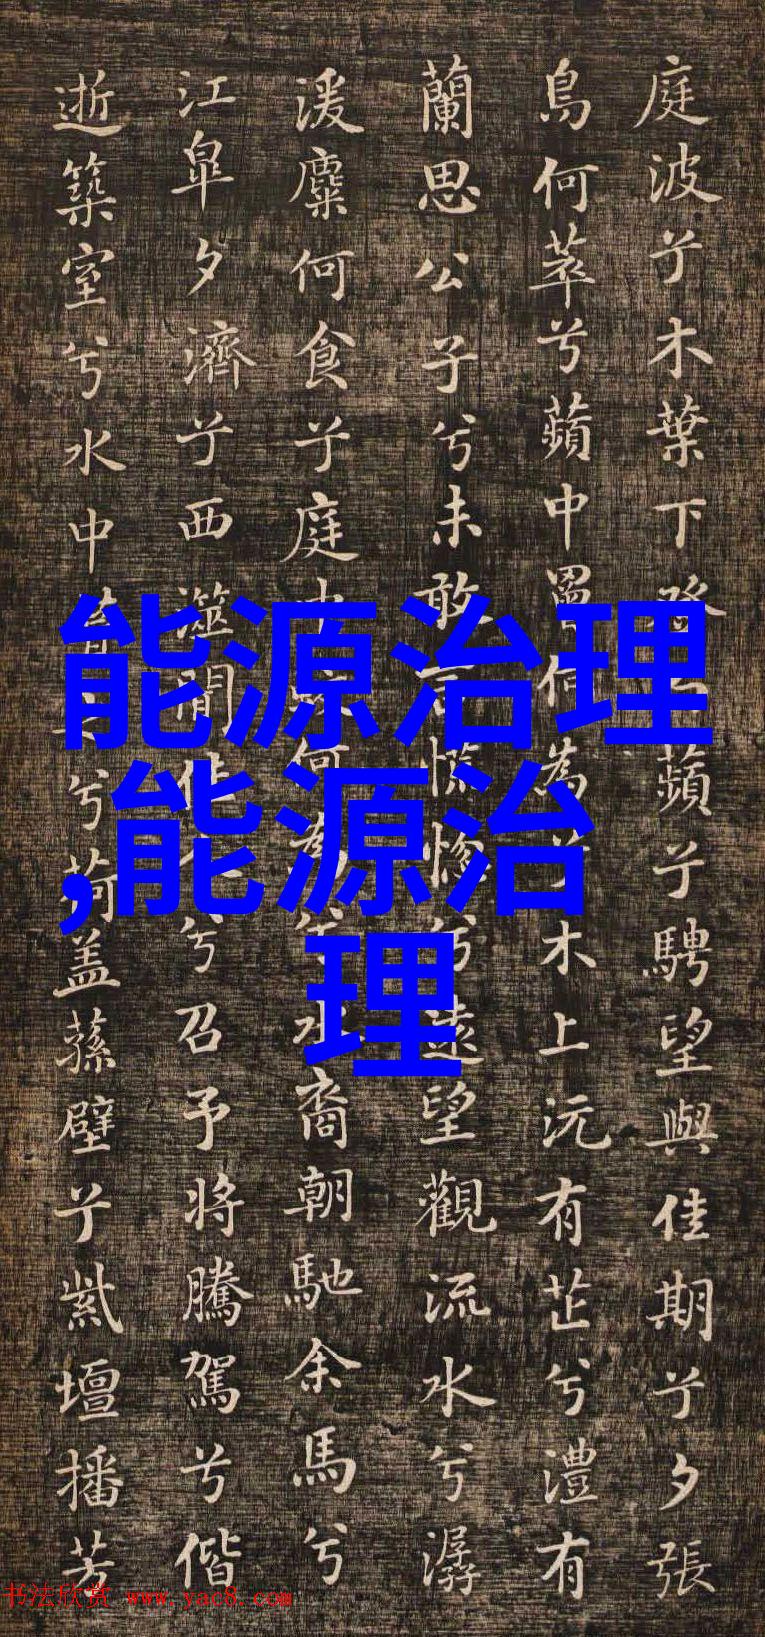 庭波兮木葉下登蘋兮騁望與佳期兮夕張
鳥何萃兮蘋中罾何為兮木上沅有芷兮澧有
蘭思公子兮未敢言慌惚兮遠望觀流水兮潺
湲麋何食兮庭中何為兮水裔朝馳余馬兮
江皐夕濟兮西澨聞佳兮召予將騰駕兮偕
逝築室兮水中葺兮荷盖蓀壁兮紫壇播芳
能源治理
,能源治
理
书法欣赏 www.yac8.com